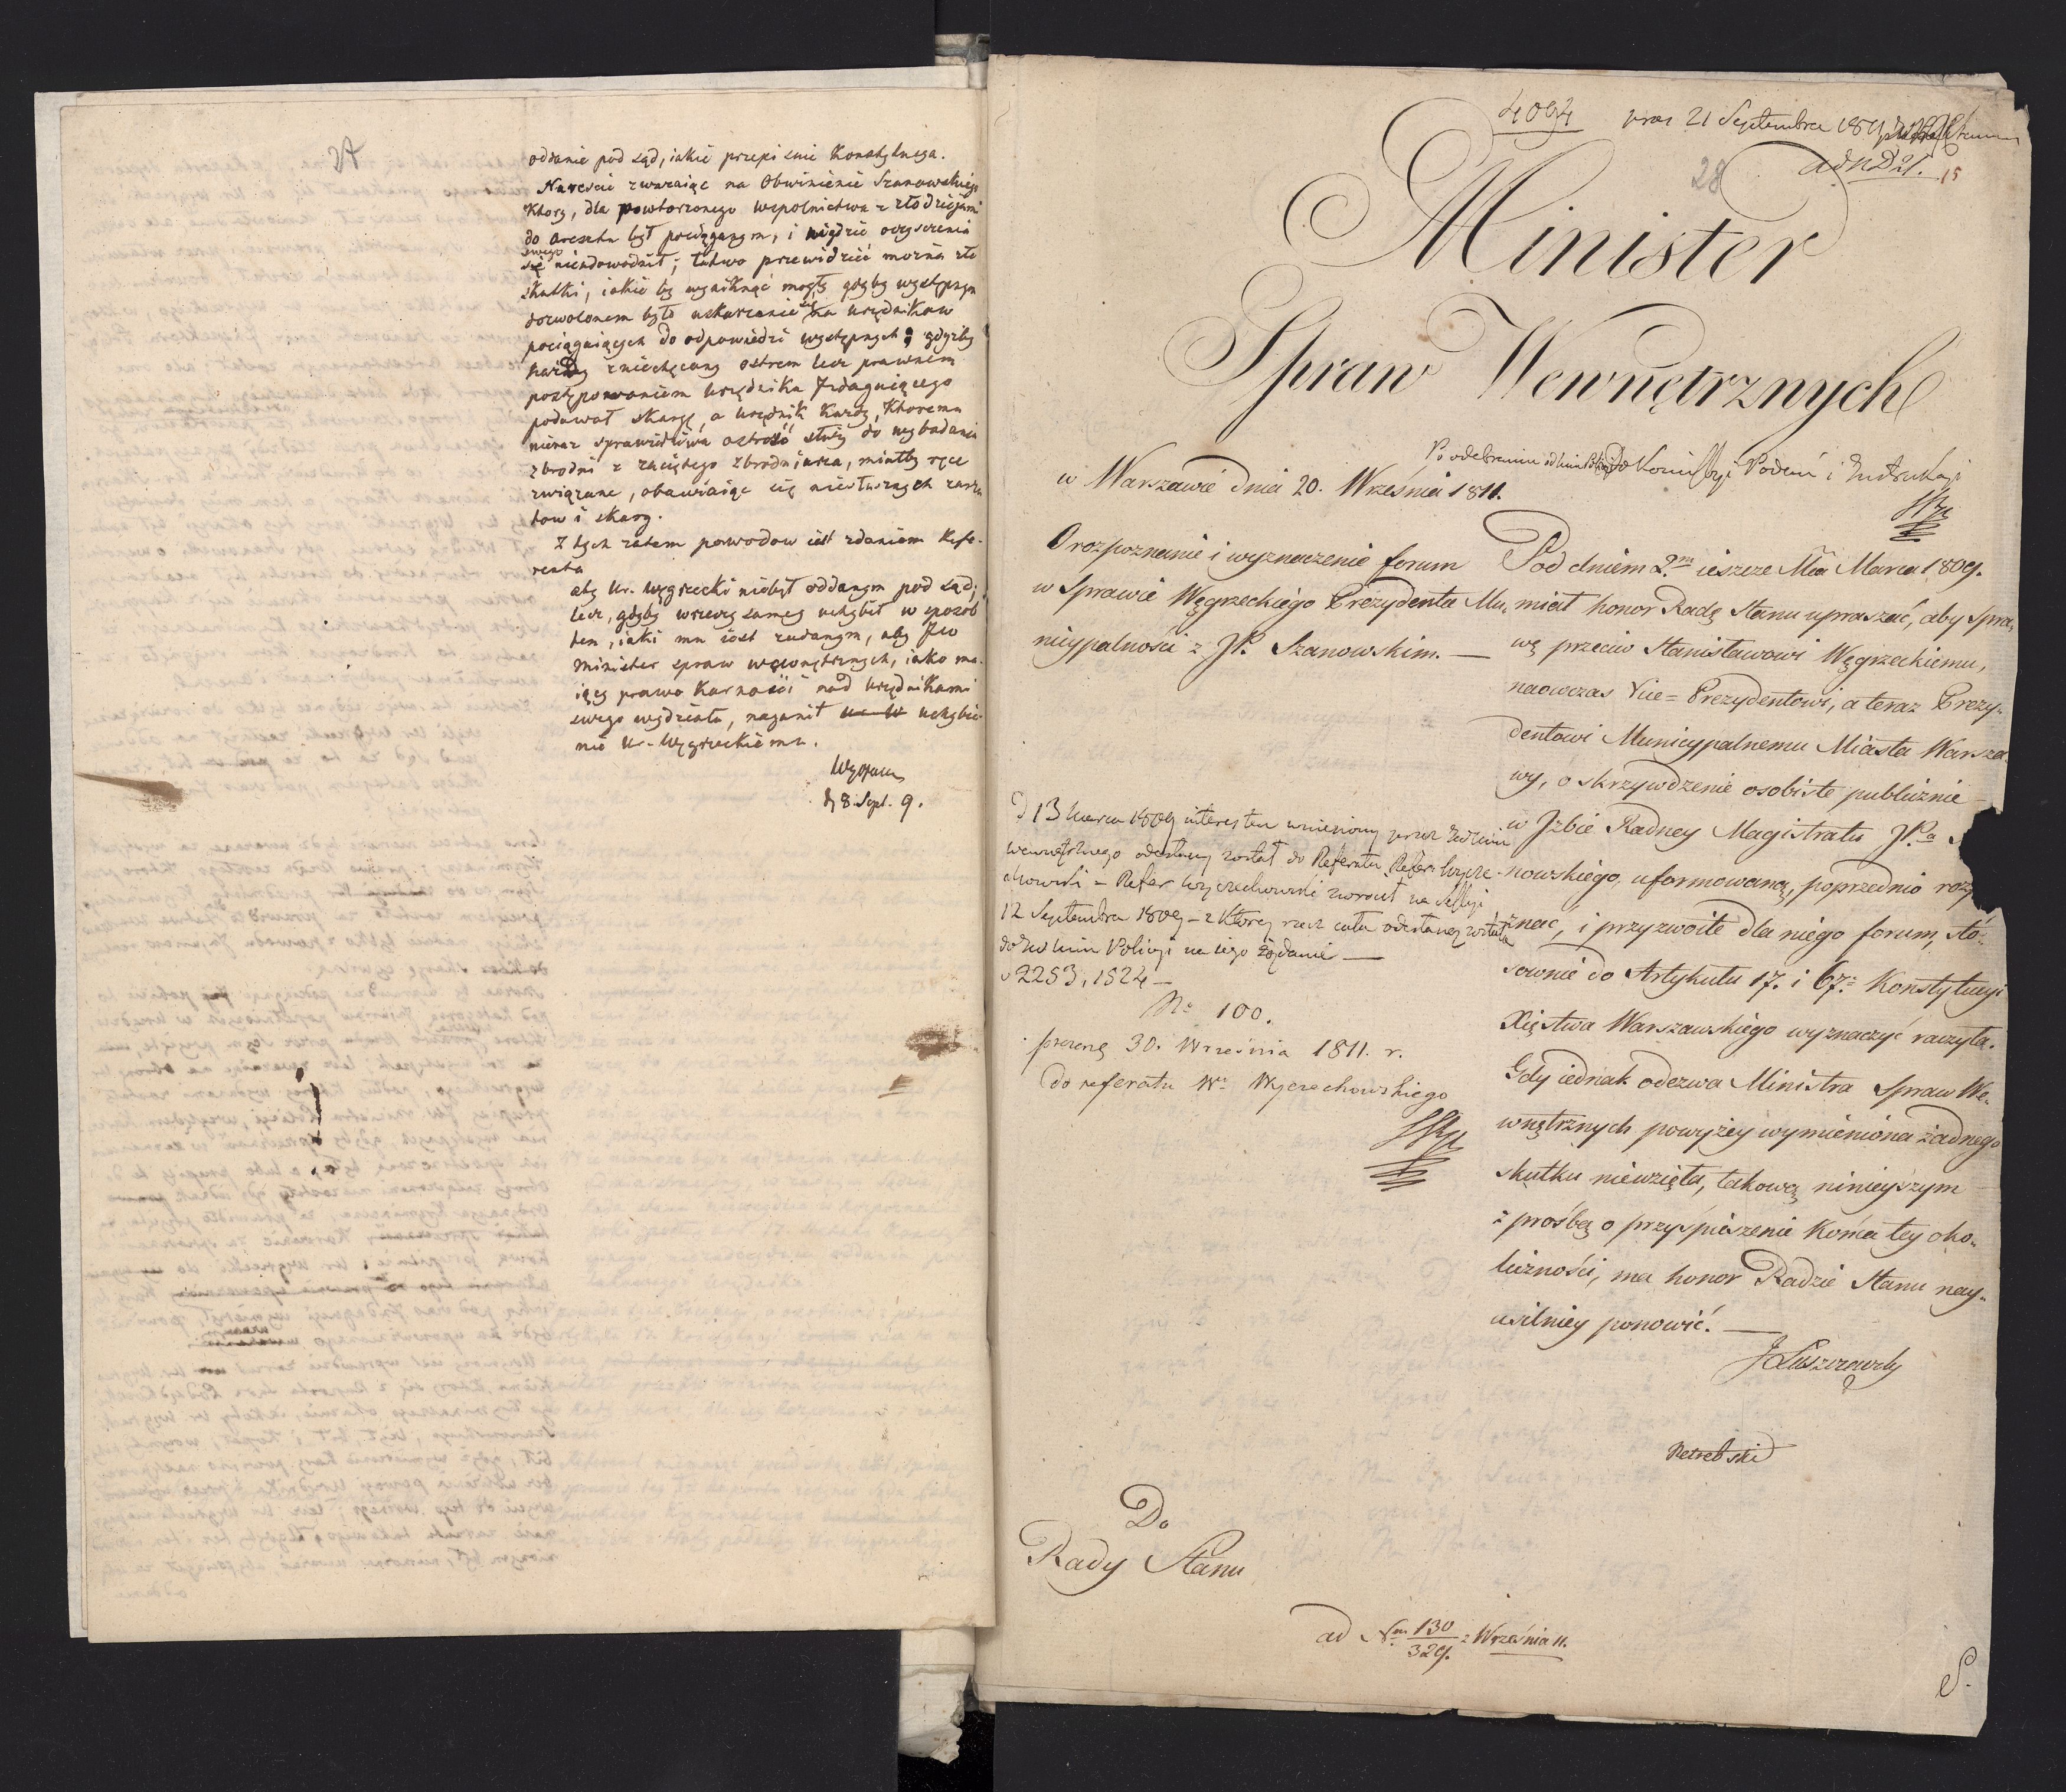 oddanie pod sąd, iakie przepisuie Konstytucya.
Nareście zważaiąc na Obwinienie Szanowskiego
Ktory, dla powtorzonego wspolnictwa z złodzieiami
do aresztu był pociąganym, i nigdzie oczyszczenia
swego
się niedowodził; łatwo przewidzieć można złe
skutki, iakie by wyniknąć mogły gdyby występnym
dozwolonem było uskarżanie się na urzędnikow
pociągaiących do odpowiedzi występnych; gdyżby
każdy zniechęcony ostrem lecz prawnem
postępowaniem urzędnika Indaguiącego
podawał skargę, a urzędnik każdy, Ktoremu
nieraz sprawiedliwa ostrość służy do wybadania
zbrodni z zaciętego zbrodniarza, miałby ręce
związane, obawiaiąc się niesłusznych zarzu
tow i skarg.
Z tych zatem powodow iest zdaniem Refe-
renta
aby Ur. Węgrzecki niebył oddanym pod sąd;
lecz, gdyby wrzeczy samey uchybił w sposob
ten, iaki mu iest zadanym, aby JW
Minister spraw wewnętrznych, iako ma-
iący prawo Karności nad urzędnikami
swego wydziału, naganił uchybie-
nie Ur. Węgrzeckiemu.
d 8 Sept. 9.
4094 prez 21 Septembra 1811
ad N D 21. 15
28
Minister
Spraw Wewnętrznych
Po odebraniu
w Warszawie dnia 20. Września 1811.
O rozpoznanie i wyznaczenie forum
w Sprawie Węgrzeckiego Prezydenta Mu,
nicypalności z JP. Szanowskim. —
Pod dniem 2.m ieszcze Mca Marca 1809.
miał honor Radę Stanu upraszać, aby spra,
wę przeciw Stanisławowi Węgrzeckiemu,
naowczas Vice=Prezydentowi, a teraz Prezy,
dentowi Municypalnemu Miasta Warsza
wy, o skrzywdzenie osobiste publicznie
w Izbie Radney Magistratu JPa
nowskiego, uformowaną, poprzednio roz
znać, i przyzwoite dla niego forum, sto,
sownie do Artykułu 17. i 67. Konstytucyi
Xięstwa Warszawskiego wyznaczyć raczyła.
Gdy iednak odezwa Ministra Spraw We,
wnętrznych powyżey wymieniona żadnego
skutku niewzięła, takową ninieyszym
z prośbą o przyśpieszenie Końca tey oko,
liczności, ma honor Radzie Stanu nay,
usilniey ponowić. —
J Łuszczewski
D 13 Marca 1809 interes ten wniesiony przez
wewnętrznego odesłany został do Referatu Refer: Wycze-
chowski = Refer Wyczechowski zwrocił na Sessyi
12 Septembra 1809 – z ktorey rzecz cała odesłaney została
do Policyi na iego żądanie —
2253, 1524 —
No 100.
prezent 30. Września 1811. r.
do referatu Wo Wyczechowskiego
Do
Rady Stanu
ad Nm 130/329. z Września 11.
S.